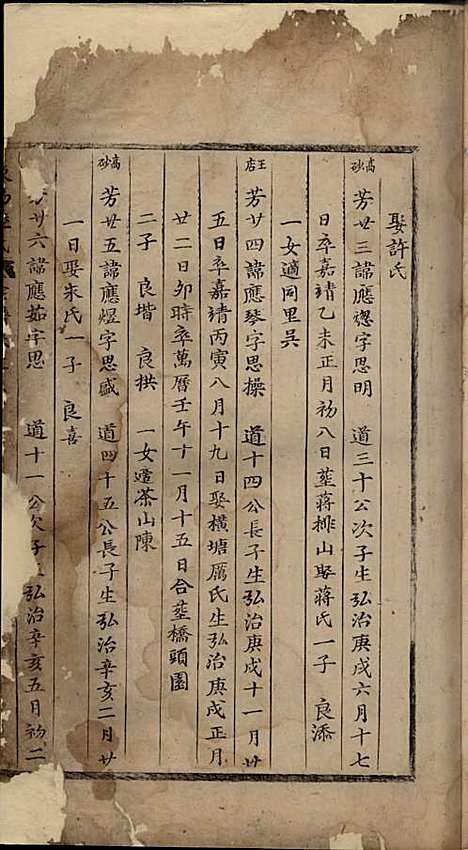 娶許氏
高砂 芳廿三諱應𢡟字思明 道三十公次子生弘治庚戌六月十七
日卒嘉靖乙未正月初八日葬蔣排山娶蔣氏一子 良添
一女適同里吳
王店 芳廿四諱應琴字思操 道十四公長子生弘治庚戌十一月廿
五日卒嘉靖丙寅八月十九日娶橫塘厲氏生弘治庚戌正月
廿二日夘時卒萬曆壬午十一月十五日合塟橋頭園
二子 良堦 良拱 一女適茶山陳
高砂 芳廿五諱應煜字思盛 道四十五公長子生弘治辛亥二月廿
一日娶朱氏一子 良喜
芳廿六諱應茹字思 道十一公次子生弘治辛亥五月初二